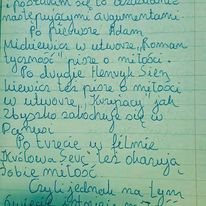 i postaram się to uzasadnić
następującymi argumentami.
Po pierwsze Adam
Mickiewicz w utworze „Roman
tyczność" pisze o miłości.
Po drugie Henryk Sien
kiewicz też pisze o miłości
w utworze „Krzyżacy" jak
Zbyszko zakochuje się w
Danusi
Po trzecie w filmie
Królowa Serc też okazują
sobie miłość.
Czyli jednak na tym
świecie istnieje